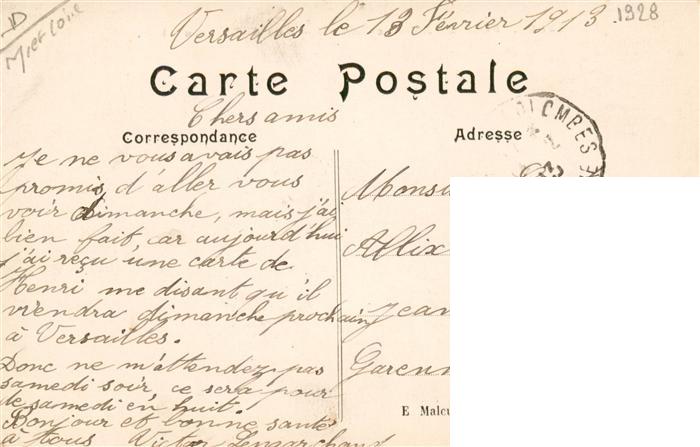 D
M et Loire
1928
Versailles le 13 Février 1913
Carte Postale
Chers amis
Correspondance
Je ne vous avais pas
promis d'aller vous
voir dimanche, mais j'ai
bien fait, car aujourd'hui
j'ai reçu une carte de
Henri me disant qu'il
viendra dimanche prochain
à Versailles.
Donc ne m'attendez pas
samedi soir, ce sera pour
le samedi en huit.
Bonjour et bonne santé
à tous Victor Lemarchand
Adresse
COLOMBES
Monsi
Allix
Jean
Garenn
E Malcu